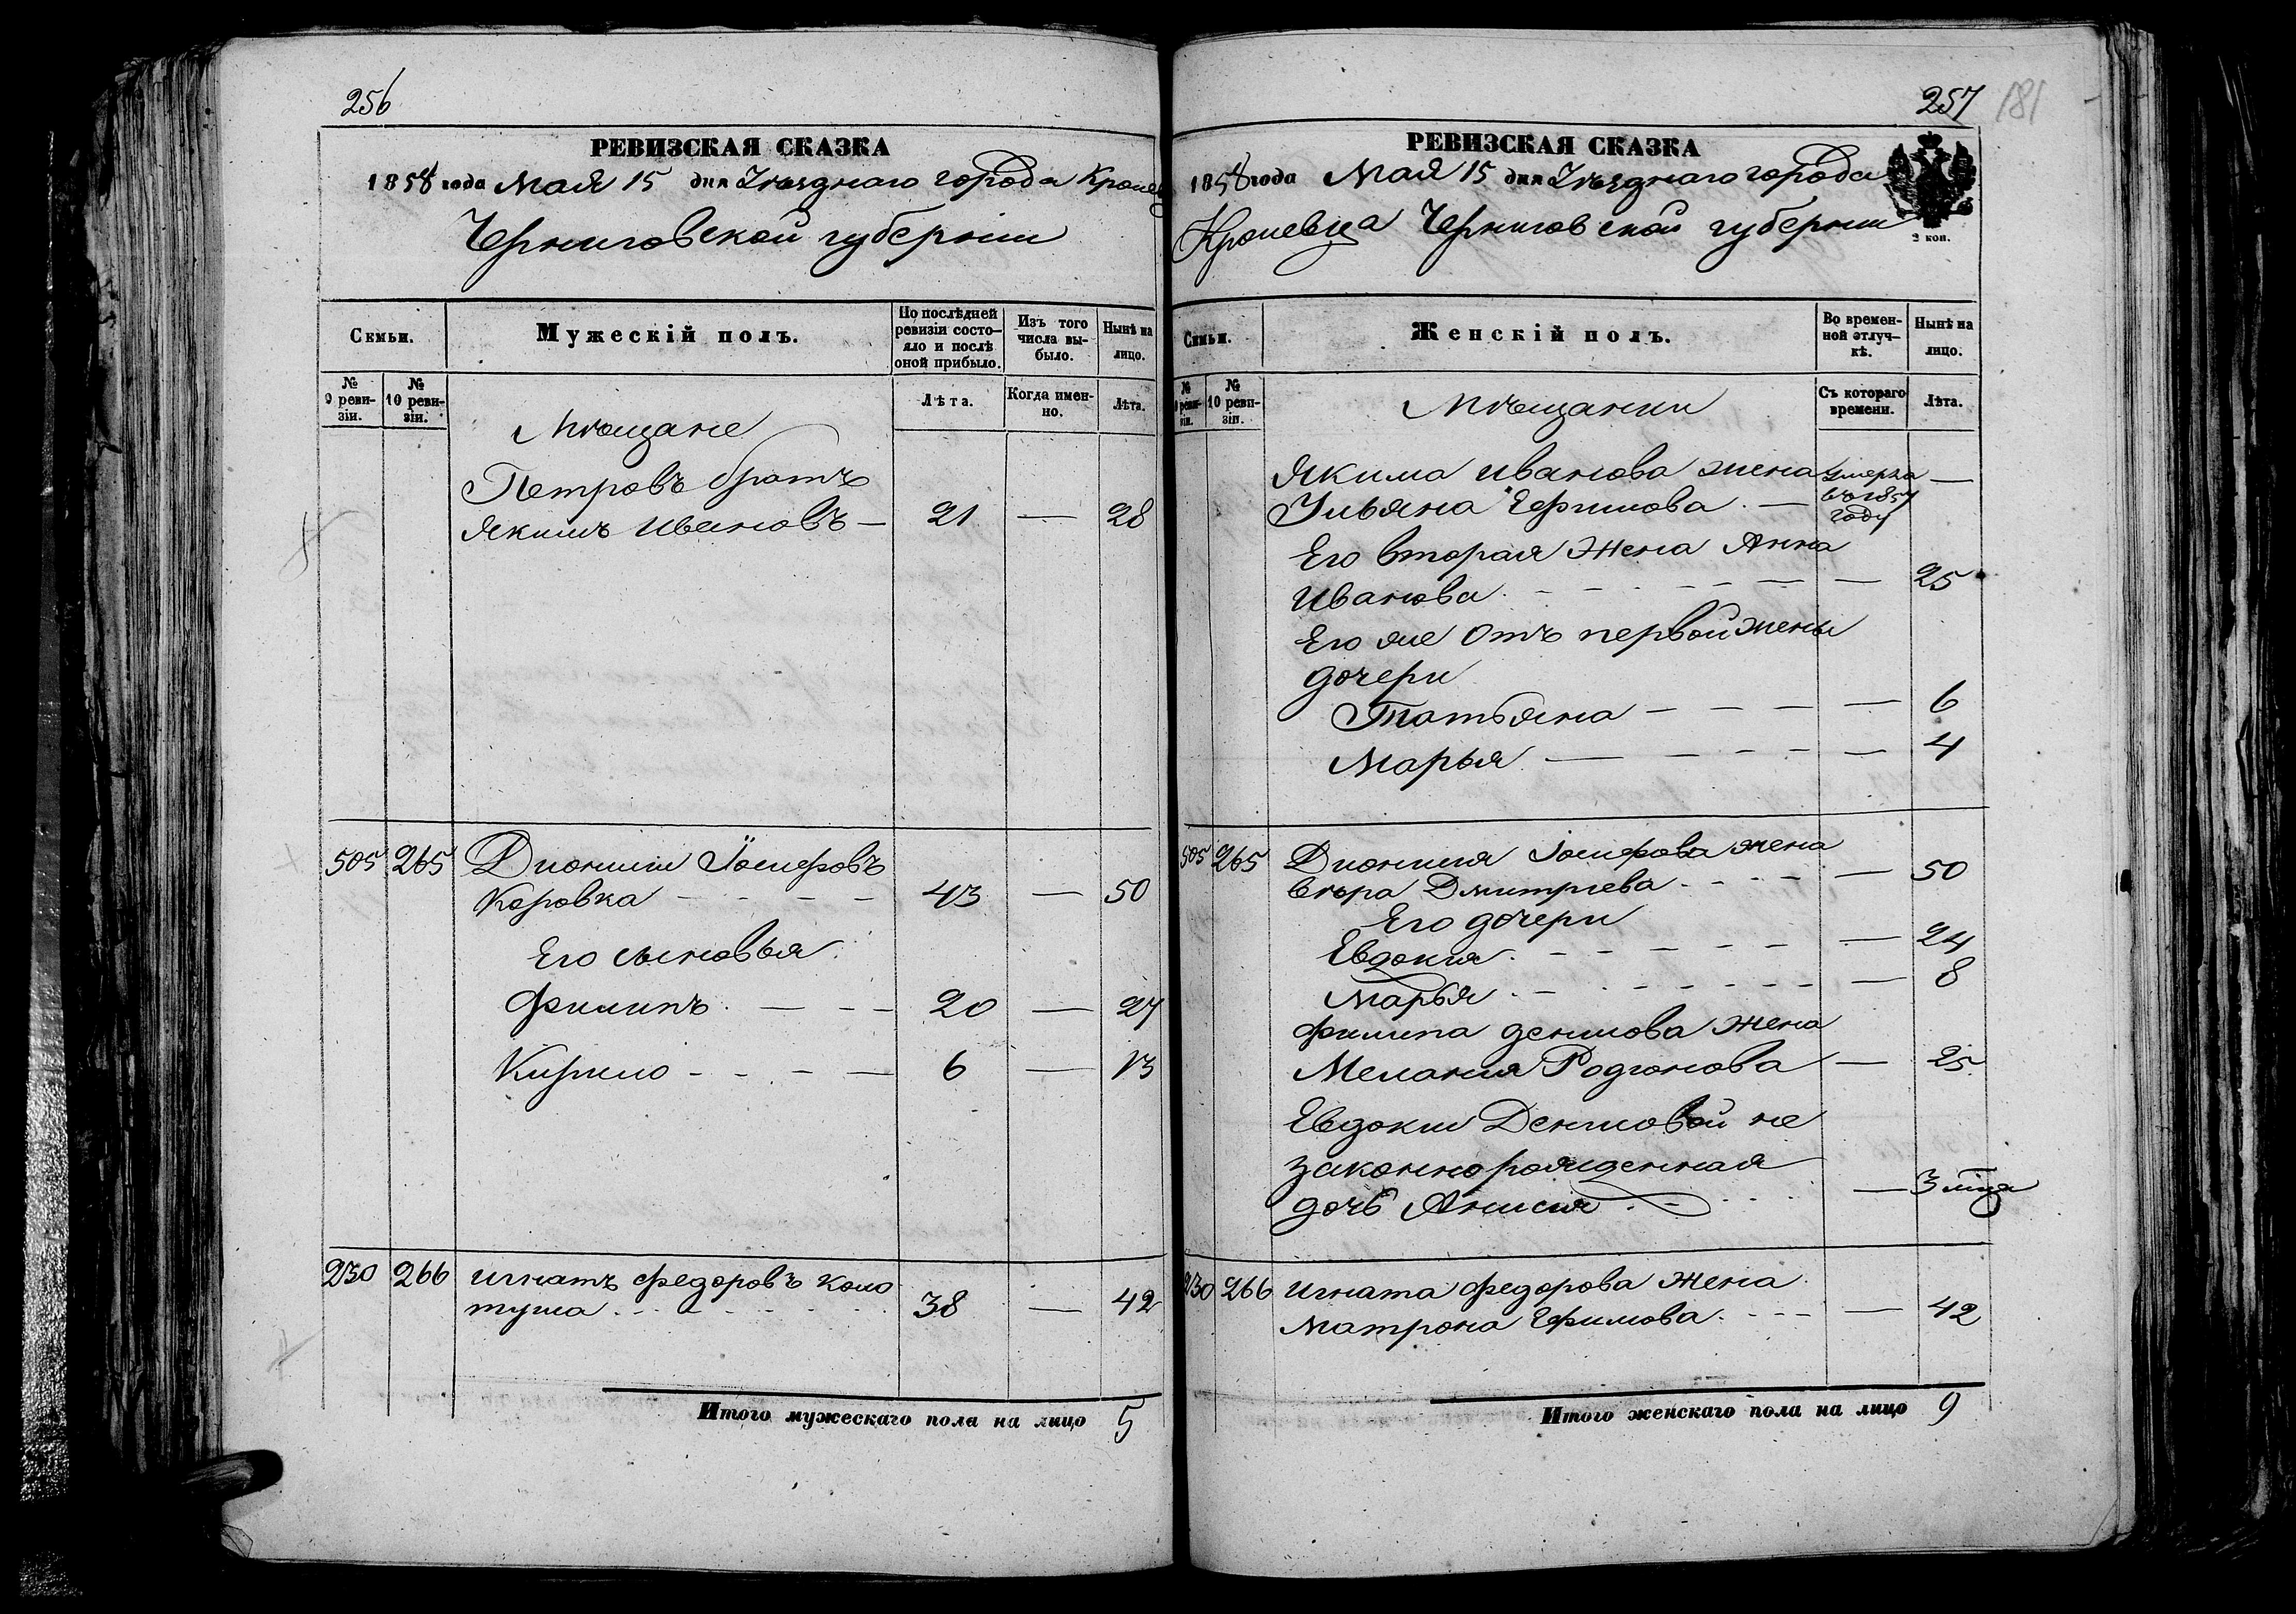 256
РЕВИЗСКАЯ СКАЗКА
1858 года Мая 15 дня Уѣзднаго города Кролев
Черниговской губерніи
Семьи.
Мужескій полъ.
По послѣдней ревизіи состояло и послѣ оной прибыло.
Изъ того числа выбыло.
Нынѣ на лицо.
№ 9 ревизіи.
№ 10 ревизіи.
Лѣта.
Когда именно.
Лѣта.
Мѣщане
Петровъ братъ
Якимъ Ивановъ — 21 — 28
505 265 Дионисій Іосифовъ
Коровка - - - - 43 — 50
Его сыновья
Филипъ. — - - 20 — 27
Кирило - - - — 6 — 13
230 266 Игнатъ Федоровъ Коло
туша - - - 38 — 42
Итого мужескаго пола на лицо 5
257 181
РЕВИЗСКАЯ СКАЗКА
1858 года Мая 15 дня Уѣзднаго города
Кролевца Черниговской губерніи
2 коп.
Семьи.
Женскій полъ.
Во временной отлучкѣ.
Нынѣ на лицо.
№ 9 ревизіи.
№ 10 ревизіи.
Съ котораго времени.
Лѣта.
Мѣщанки
Якима Иванова жена умерла —
Ульяна Ефимова. — въ 1857
году
Его вторая жена Анна
Иванова. - - - - — 25
Его же отъ первой жены
дочери
Татьяна - - - — 6
Марья — - - - — 4
505 265 Дионисія Іосифова жена
Вѣра Дмитріева - - - — 50
Его дочери
Евдокия. - - - - — 24
Марья. - - - - — 8
Филипа Денисова жена
Мелания Родионова — 25
Евдокии Денисовой не
законнорожденная
дочь Анисия. - — 3 мца
230 266 Игната Федорова жена
Матрона Ефимова. - - - — 42
Итого женскаго пола на лицо 9